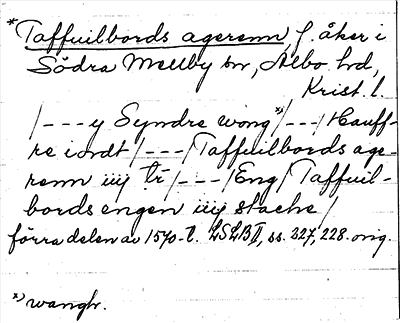 *Taffuilbords agerenn, f. åker i
Södra Mellby sn, Albo hd,
Krist. l.
/---y Syndre wong*)/---/Hauff-
re iordt/---/Taffuilbords age-
renn iiij tr/---/Eng/Taffuil-
bords engen iiij stache/
förra delen av 1570-t. LSLB II, ss. 327, 228. orig.
*) wanghr.